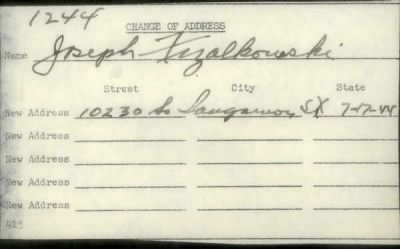 1244
CHANGE OF ADDRESS
Name Joseph Fizalkowski
Street City State
New Address 10230 So Sangamon St 7-17-44
New Address
New Address
New Address
New Address
413